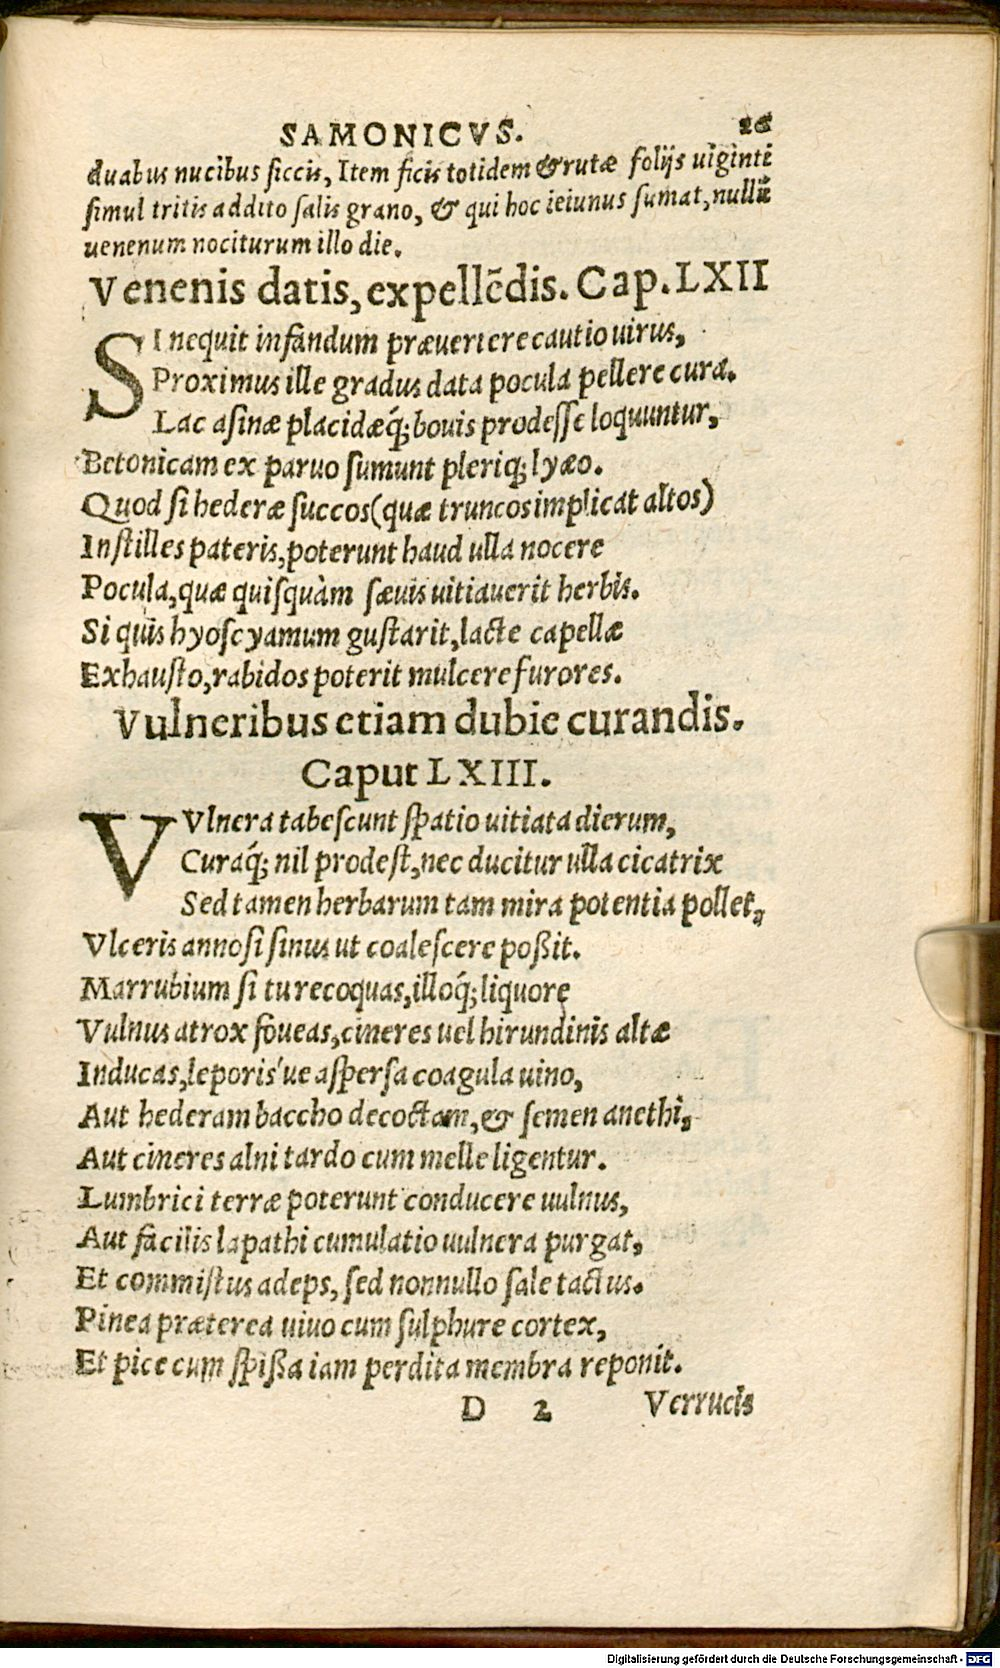 SAMONICVS. 26
duabus nucibus siccis, Item ficis totidem & rutæ folijs uiginti
simul tritis addito salis grano, & qui hoc ieiunus sumat, nullũ
uenenum nociturum illo die.
Venenis datis, expellẽdis. Cap. LXII
SI nequit infandum præuertere cautio uirus,
Proximus ille gradus data pocula pellere cura.
Lac asinæ placidæq́; bouis prodesse loquuntur,
Betonicam ex paruo sumunt pleriq; lyæo.
Quod si hederæ succos (quæ truncos implicat altos)
Instilles pateris, poterunt haud ulla nocere
Pocula, quæ quisquàm sæuis uitiauerit herbis.
Si quis hyoscyamum gustarit, lacte capellæ
Exhausto, rabidos poterit mulcere furores.
Vulneribus etiam dubie curandis.
Caput LXIII.
VVlnera tabescunt spatio uitiata dierum,
Curaq́; nil prodest, nec ducitur ulla cicatrix
Sed tamen herbarum tam mira potentia pollet,
Vlceris annosi sinus ut coalescere poßit.
Marrubium si tu recoquas, illoq́; liquore
Vulnus atrox foueas, cineres uel hirundinis altæ
Inducas, leporis'ue aspersa coagula uino,
Aut hederam baccho decoctam, & semen anethi,
Aut cineres alni tardo cum melle ligentur.
Lumbrici terræ poterunt conducere uulnus,
Aut facilis lapathi cumulatio uulnera purgat,
Et commistus adeps, sed nonnullo sale tactus.
Pinea præterea uiuo cum sulphure cortex,
Et pice cum spißa iam perdita membra reponit.
D 2 Verrucis
Digitalisierung gefördert durch die Deutsche Forschungsgemeinschaft - DFG